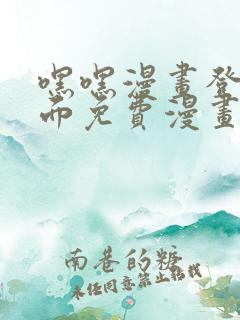 嘿嘿漫畫登
面免費漫畫
南巷的糖
未经同意禁止转载